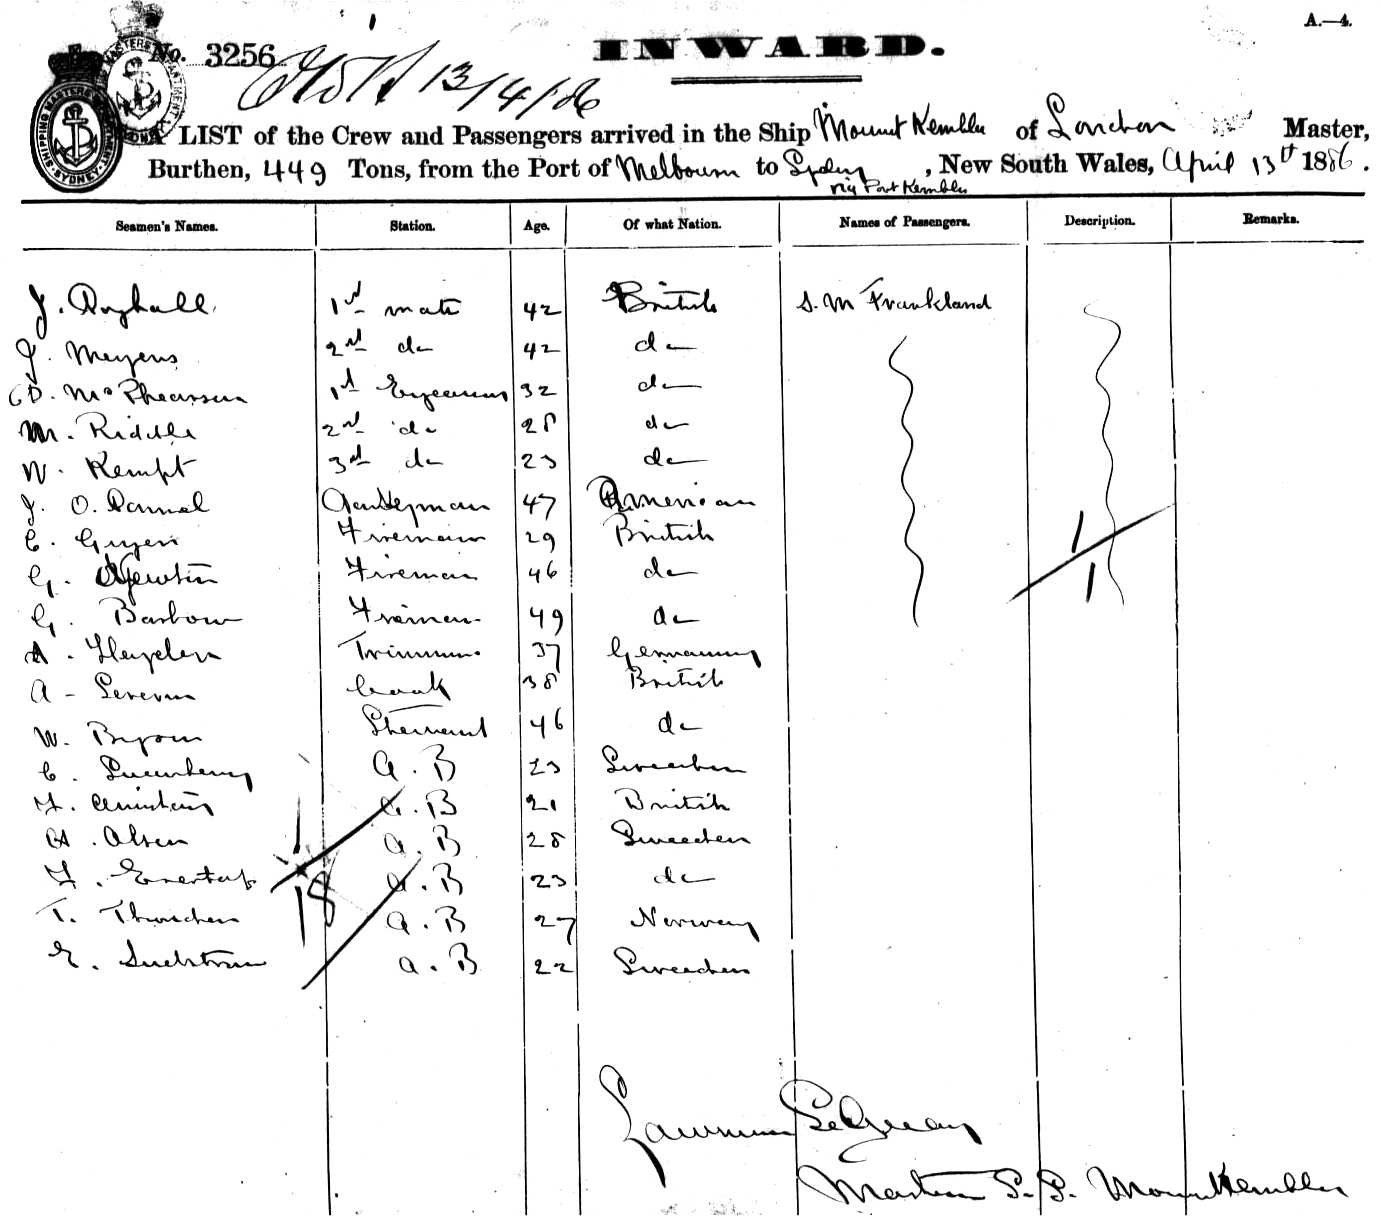 A.—4.
No. 3256
INWARD.
13/4/86
A LIST of the Crew and Passengers arrived in the Ship Mount Kembla of London Master,
Burthen, 449 Tons, from the Port of Melbourn to Sydney, New South Wales, April 13th 1886.
via Port Kembla
Seamen's Names. Station. Age. Of what Nation. Names of Passengers. Description. Remarks.
J. 1st mate 42 British S. M Frankland
J. Meyers 2nd do 42 do
D. McPhearson 1st 32 do
M. Riddle 2nd do 28 do
W. Kempt 3rd do 23 do
J. O. Donnel Donkeyman 47 American
C. Fireman 29 British
G. Newton Fireman 46 do
G. Barbour Fireman 49 do
A. Heyden Trimmer 37 Germany
A - Severn Cook 38 British
W. Byron Steward 46 do
C. A. B 23 Sweeden
F. A. B 21 British
A. Olsen A. B 28 Sweeden
F. A. B 23 do
T. A. B 27 Norway
E. A. B 22 Sweeden
1
1
1
18
Master S. S. Mount Kembla
SHIPPING MASTERS DEPARTMENT SYDNEY